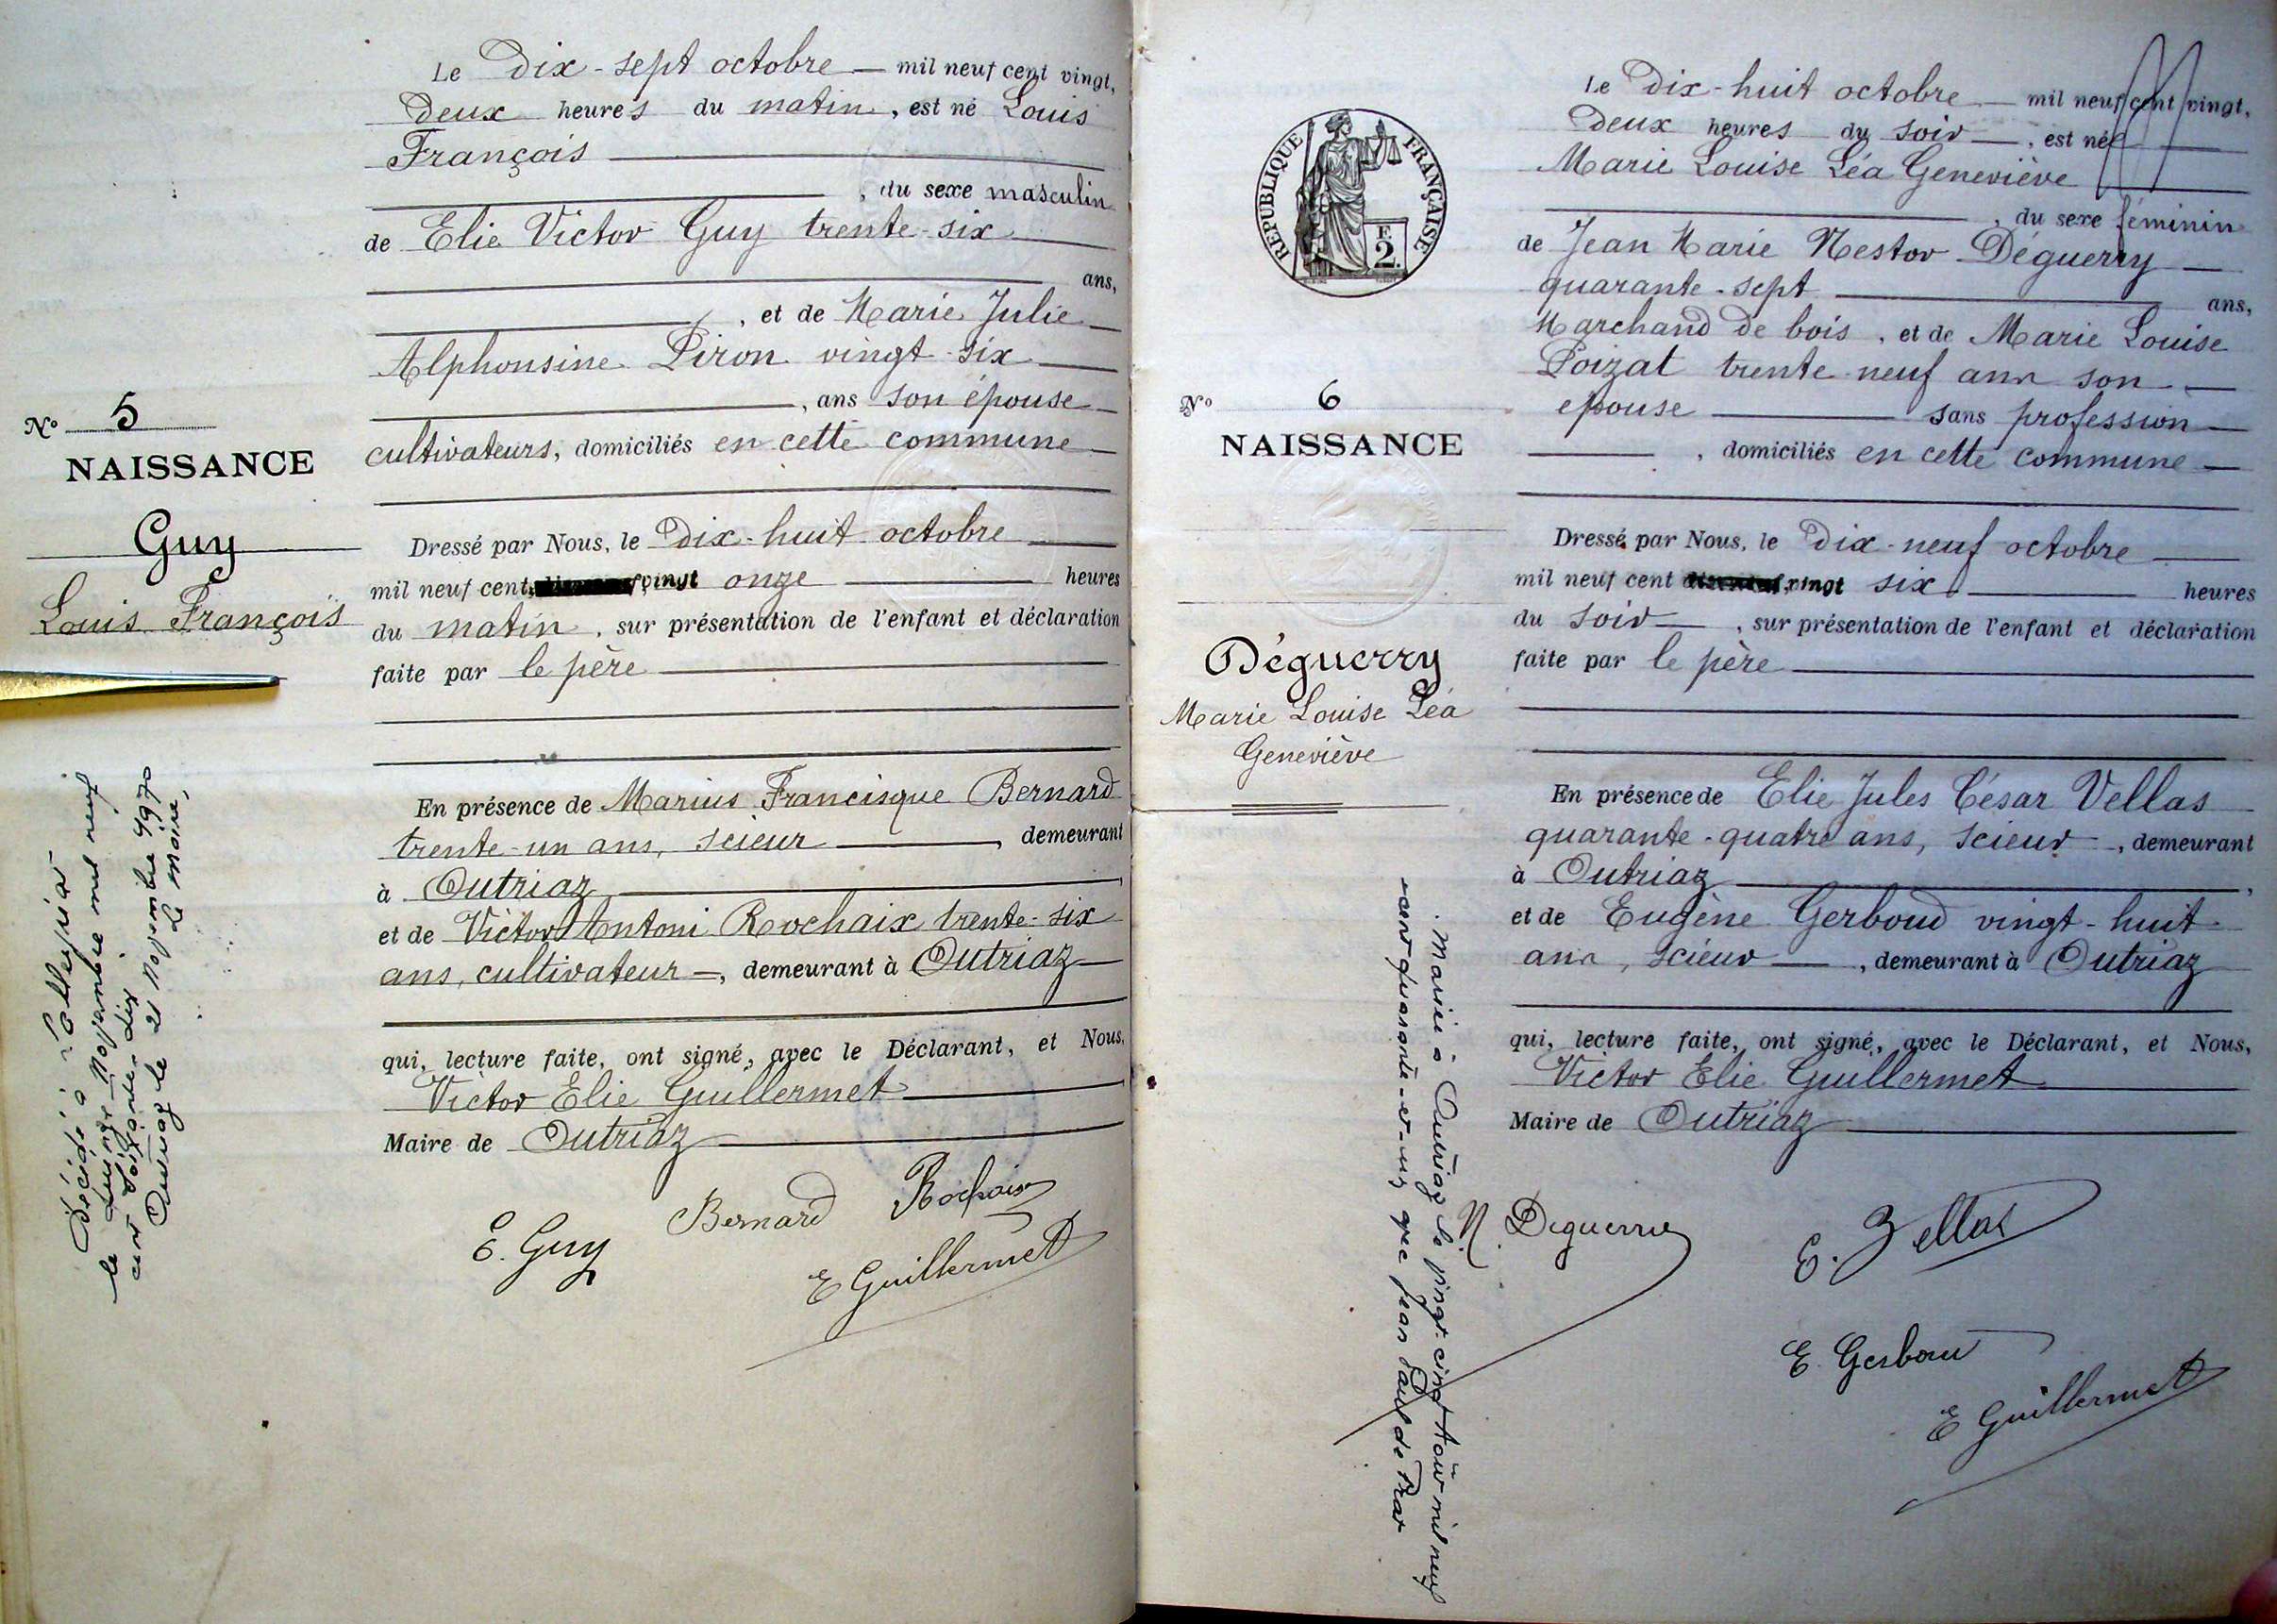 Le Dix-sept octobre — mil neuf cent vingt,
Deux heures du matin, est né Louis
François
, du sexe masculin
de Elie Victor Guy trente-six
ans,
, et de Marie Julie
Alphonsine Piron vingt-six
, ans son épouse
cultivateurs, domiciliés en cette commune
N° 5
NAISSANCE
Guy
Louis François
Dressé par Nous, le Dix-huit octobre
mil neuf cent vingt onze heures
du matin, sur présentation de l'enfant et déclaration
faite par le père
En présence de Marius Francisque Bernard
trente-un ans, scieur, demeurant
à Outriaz
et de Victor Antoni Rochaix trente-six
ans, cultivateur —, demeurant à Outriaz
qui, lecture faite, ont signé, avec le Déclarant, et Nous,
Victor Elie Guillermet
Maire de Outriaz
E. Guy
Bernard
Rochaix
E Guillermet
Décédé à
le quinze Novembre mil neuf
cent soixante-dix
Outriaz le 21 Novembre 1970
Le Maire,
REPUBLIQUE FRANÇAISE
F.
2.
Le Dix-huit octobre — mil neuf cent vingt,
Deux heures du soir —, est née
Marie Louise Léa Geneviève
, du sexe féminin
de Jean Marie Nestor Déguerry —
quarante-sept ans,
Marchand de bois, et de Marie Louise
Poizat trente neuf ans son —
épouse sans profession
, domiciliés en cette commune —
N° 6
NAISSANCE
Déguerry
Marie Louise Léa
Geneviève
Dressé par Nous, le Dix-neuf octobre
mil neuf cent vingt six heures
du soir —, sur présentation de l'enfant et déclaration
faite par le père
En présence de Elie Jules César Vellas
quarante-quatre ans, scieur —, demeurant
à Outriaz
et de Eugène Gerboud vingt-huit
ans, scieur —, demeurant à Outriaz
qui, lecture faite, ont signé, avec le Déclarant, et Nous,
Victor Elie Guillermet
Maire de Outriaz
N. Deguerry
E. Vellas
E Gerboud
E Guillermet
Mariée à Outriaz le vingt-cinq Août mil neuf
cent quarante-et-un avec Jean Paul de